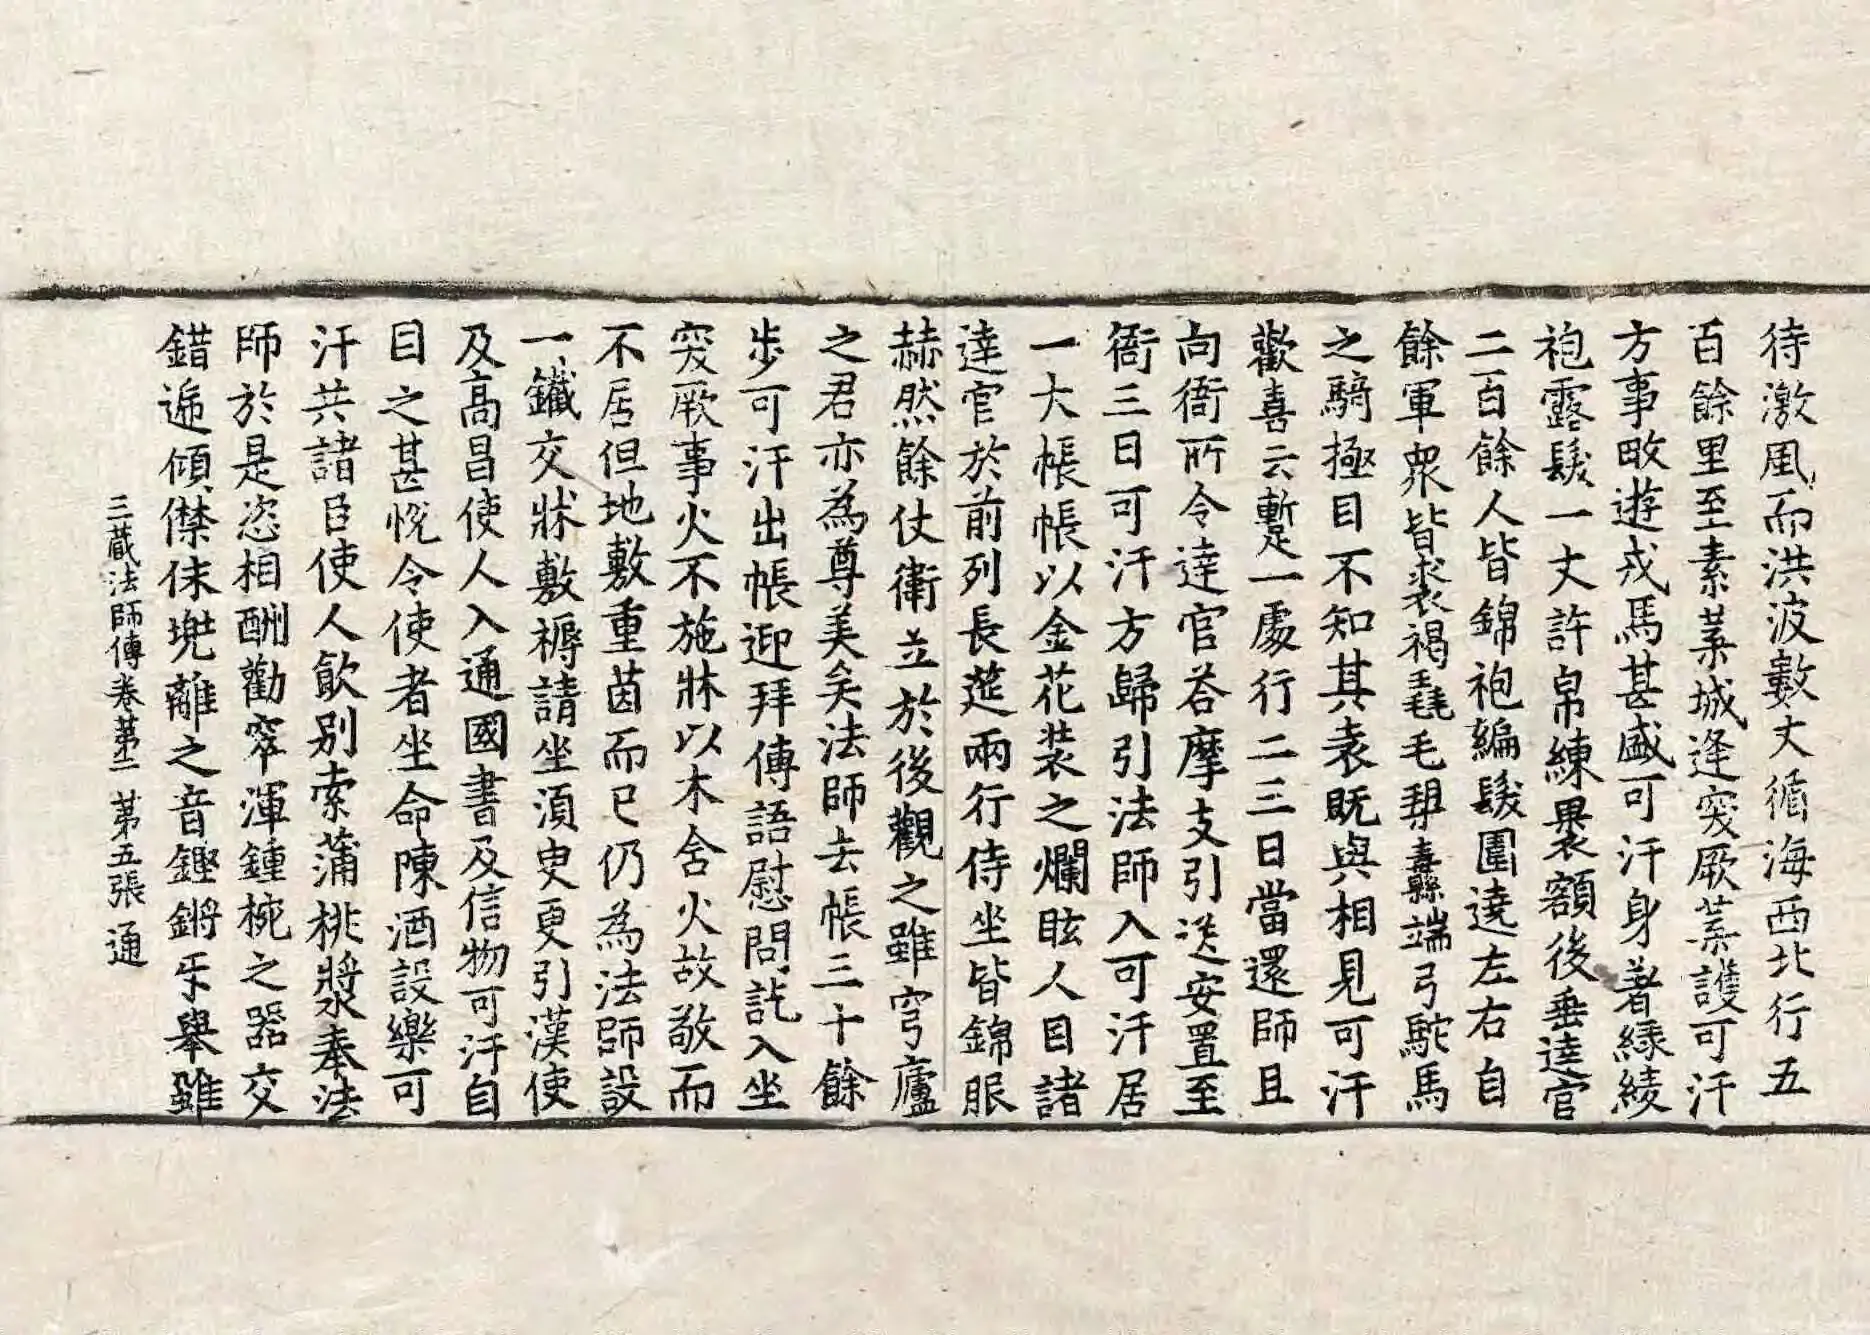 待激風而洪波數丈循海西北行五
百餘里至素葉城逢突厥葉護可汗
方事畋遊戎馬甚盛可汗身著緑綾
袍露髮一丈許帛練褁額後垂達官
二百餘人皆錦袍編髮圍遶左右自
餘軍衆皆裘褐毳毛槊纛端弓駝馬
之騎極目不知其表既與相見可汗
歡喜云暫一處行二三日當還師且
向衙所令達官荅摩支引送安置至
衙三日可汗方歸引法師入可汗居
一大帳帳以金花装之爛眩人目諸
達官於前列長莚兩行侍坐皆錦服
赫然餘仗衛立於後觀之雖穹廬
之君亦為尊美矣法師去帳三十餘
步可汗出帳迎拜傳語慰問訖入坐
突厥事火不施牀以木含火故敬而
不居但地敷重茵而已仍為法師設
一鐵交牀敷褥請坐須臾更引漢使
及高昌使人入通國書及信物可汗自
目之甚悅令使者坐命陳酒設樂可
汗共諸臣使人飲別索蒲桃漿奉法
師於是恣相酬勸窣渾鍾椀之器交
錯遞傾僸佅兠離之音鏗鏘㸦舉雖
三藏法師傳卷苐二 苐五張 通